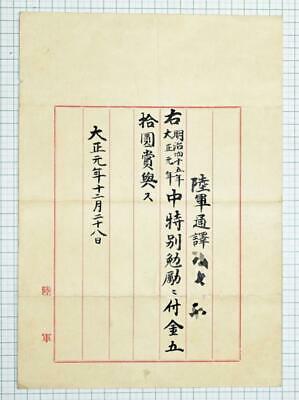 陸軍通譯
右明治四十五年大正元年中特別勉勵ニ付金五
拾圓賞與ス
大正元年十二月二十八日
陸軍